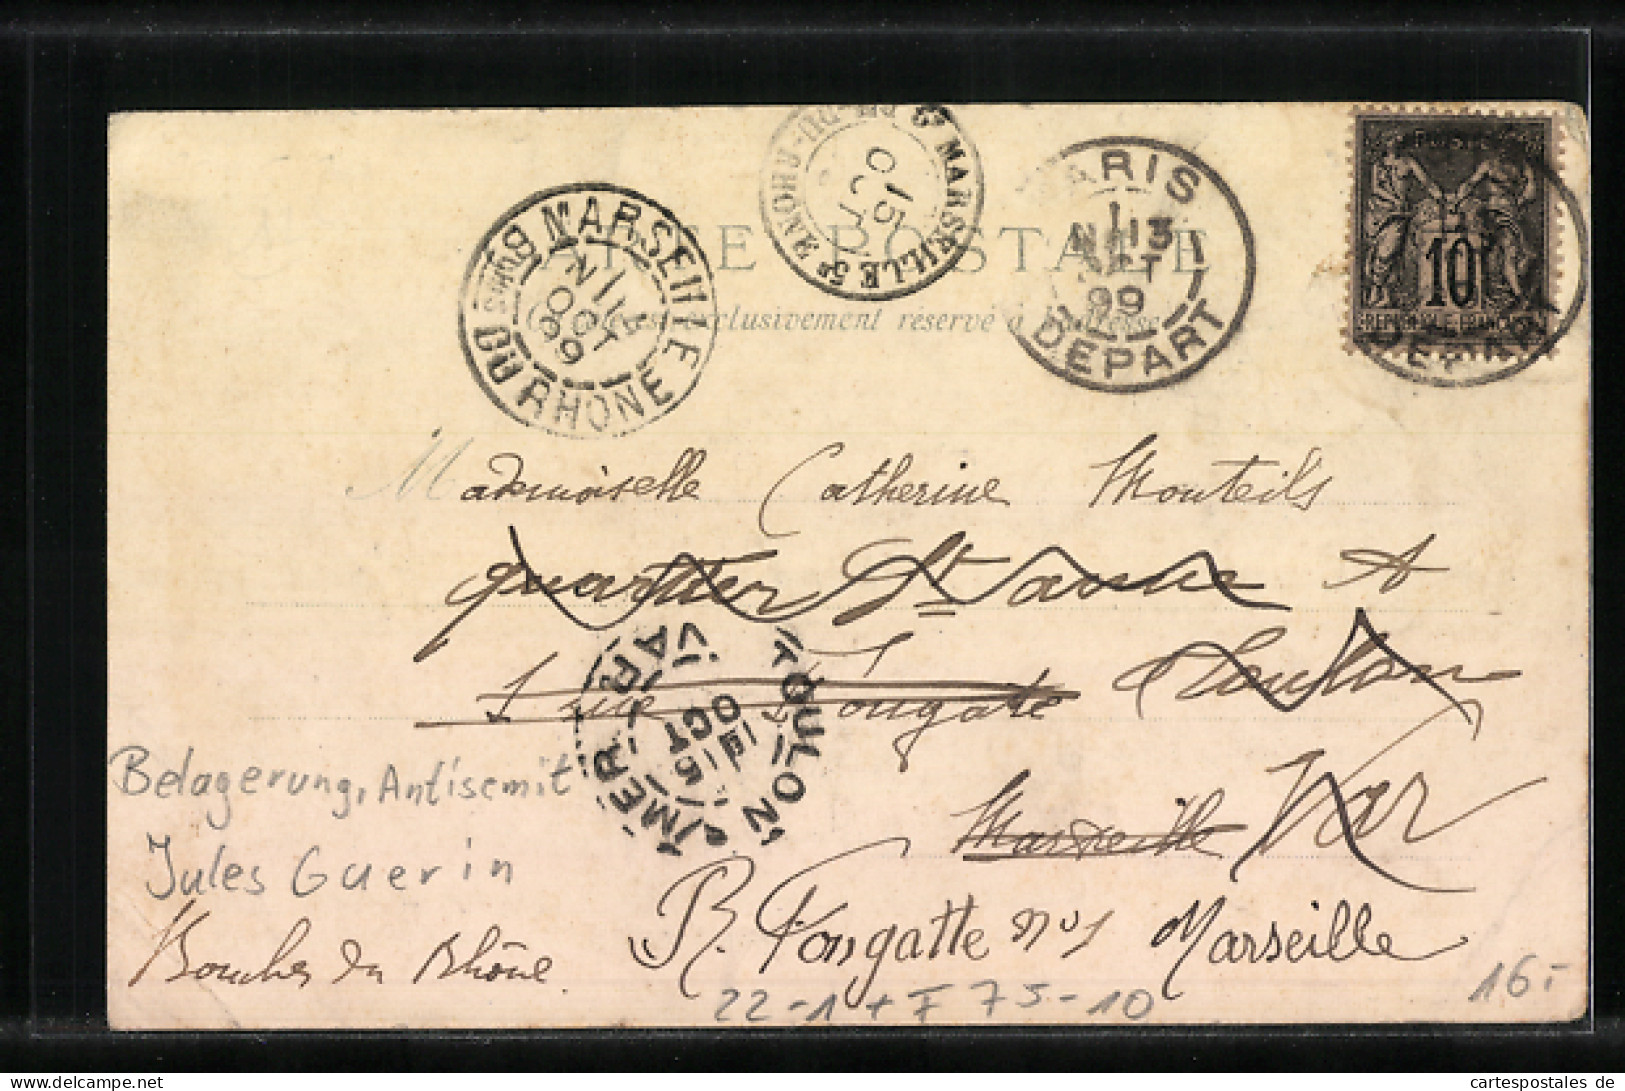 CARTE POSTALE
Ce côté est exclusivement réservé à l'adresse
MARSEILLE
Bches DU RHONE
14
OCT
99
MARSEILLE 5e
Bches-DU-RHONE
15
OCT
PARIS
13
OCT
99
DEPART
POSTES
10
REPUBLIQUE FRANCAISE
DEPART
Mademoiselle Catherine Monteils
quartier Ste anne A
1 rue Fongate Toulon
Marseille Var
TOULON
S/MER
VAR
15
OCT
Belagerung, Antisemit
Jules Guerin
R. Fongatte no 1 Marseille
Bouches du Rhône.
22-1 + F 75-10
16.-
cartespostales de